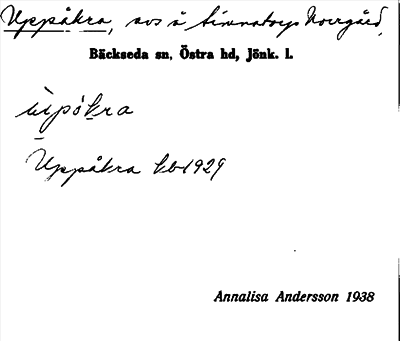 Uppåkra, avs å Linnatorps Norrgård,
Bäckseda sn, Östra hd, Jönk. l.
ùpókra
Uppåkra kb 1929
Annalisa Andersson 1938